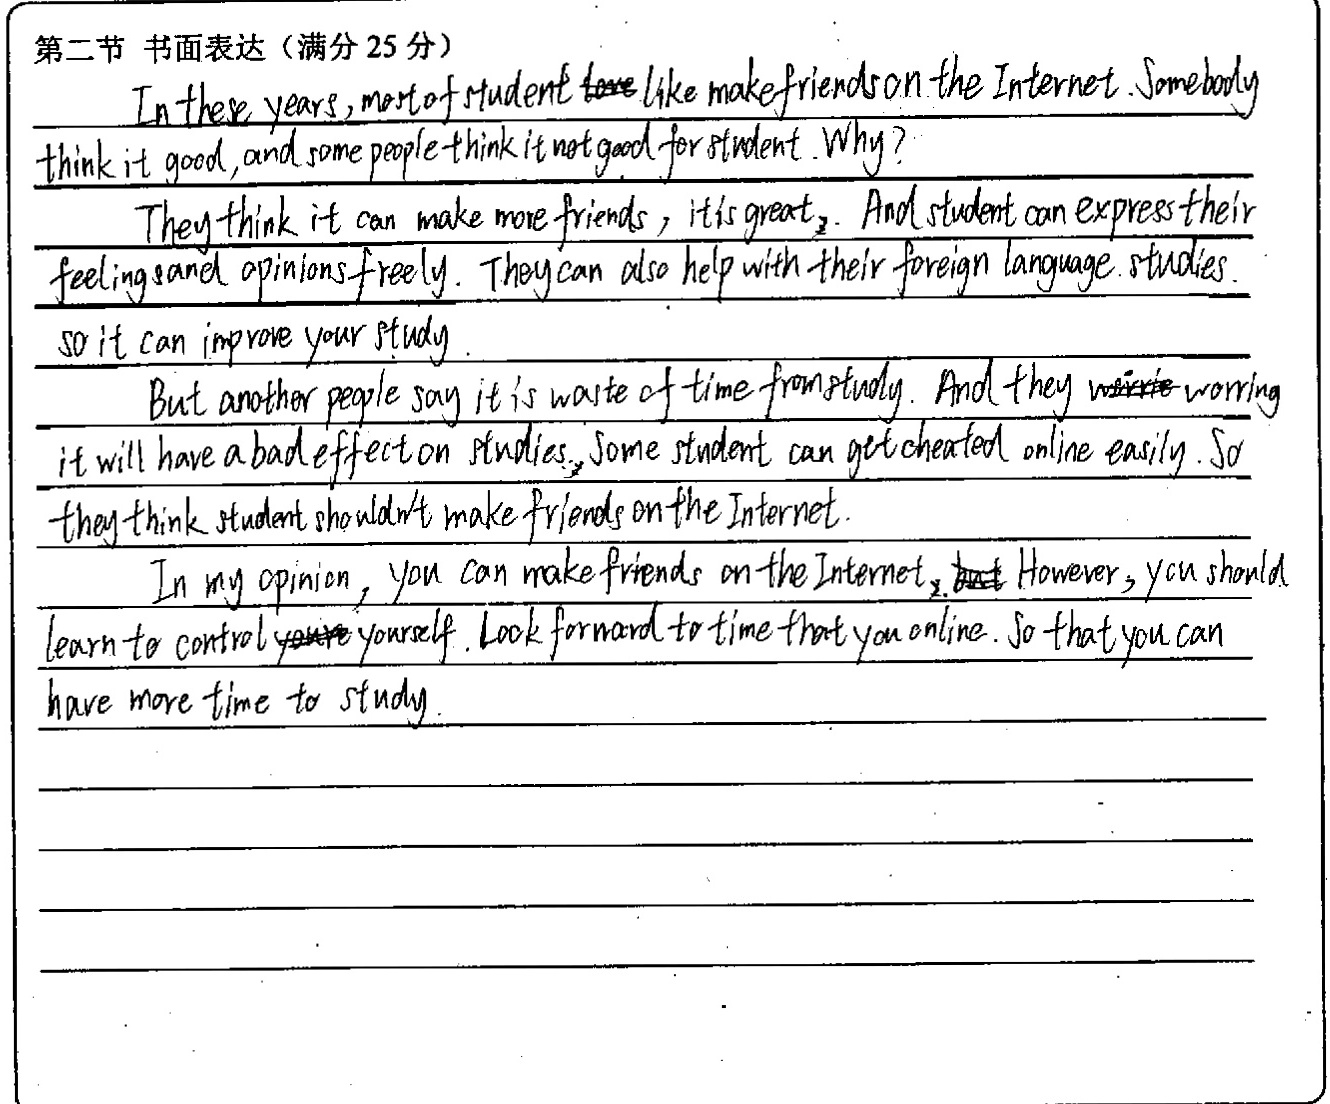 第二节 书面表达（满分 25 分）
In these years, most of student like make friends on the Internet. Somebody
think it good, and some people think it not good for student. Why?
They think it can make more friends, it is great. And student can express their
feelings and opinions freely. They can also help with their foreign language studies.
so it can improve your study.
But another people say it is waste of time from study. And they worring
it will have a bad effect on studies. Some student can get cheated online easily. So
they think student shouldn't make friends on the Internet.
In my opinion, you can make friends on the Internet. However, you should
learn to control yourself. Look forward to time that you online. So that you can
have more time to study.